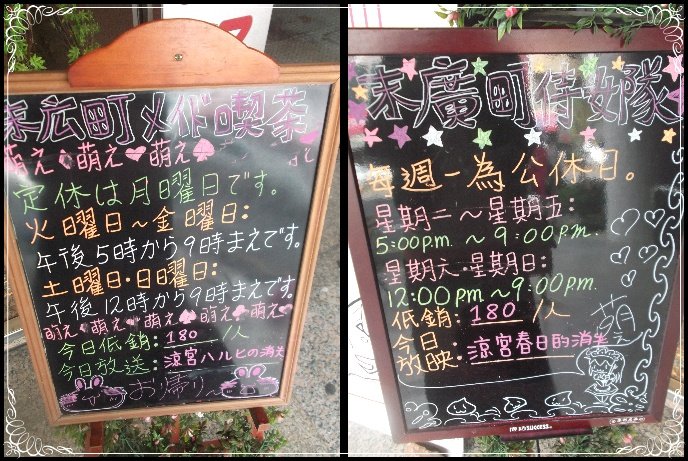 末広町メイド喫茶
萌え♦萌え♥萌え♠
定休は月曜日です。
火曜日～金曜日:
午後5時から9時まえです。
土曜日·日曜日:
午後12時から9時まえです。
萌え♦萌え♠萌え♣萌え♥萌え♥
今日低銷: 180 /人
今日放送: 涼宮ハルヒの消失
お帰り～
末廣町侍女隊
每週一為公休日。
星期二～星期五:
5:00p.m. ～9:00p.m.
星期六·星期日:
12:00pm～9:00pm.
低銷: 180 /人
今日
放映: 涼宮春日的消失
萌え